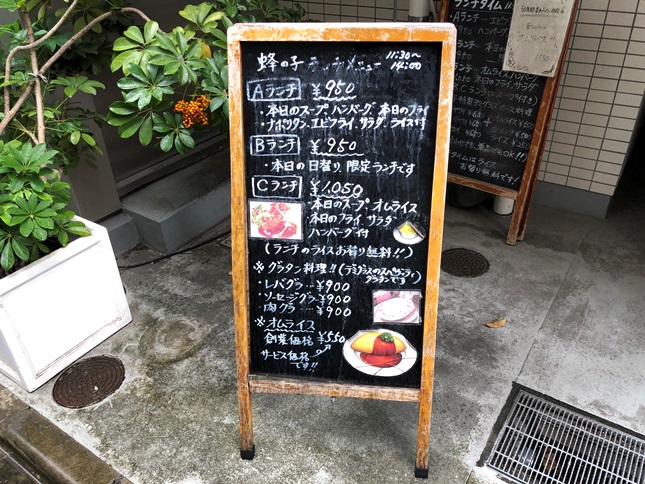 蜂の子 ランチメニュー 11:30〜14:00
Aランチ ¥950
・本日のスープ ハンバーグ 本日のフライ
・ナポリタン エビフライ サラダ ライス付
Bランチ ¥950
・本日の日替り 限定ランチです
Cランチ ¥1,050
・本日のスープ オムライス
・本日のフライ サラダ
ハンバーグ付
(ランチのライスお替り無料!!)
※グラタン料理!!(デミグラスのスパゲッティグラタンです)
・レバグラ…¥900
・ソーセージグラ…¥900
・肉グラ…¥900
※オムライス
創業価格 ¥550
サービス価格です!!
ランチタイム
Aランチ
ハンバーグ
オムライス
お替り無料です!